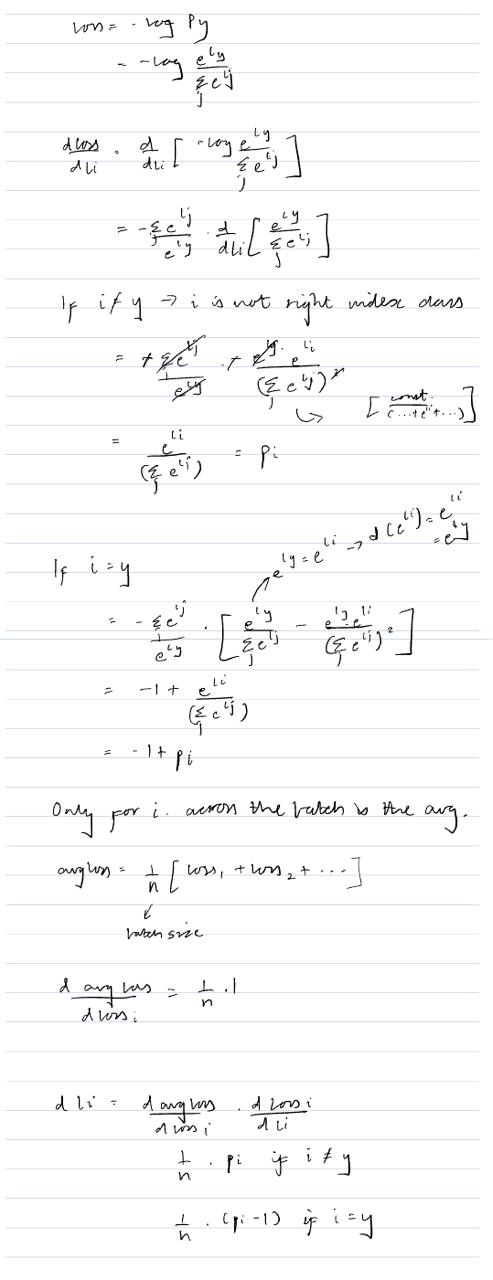 loss = - log Py
= - log e^{ly} / Σ_j e^{lj}
dloss/dli = d/dli [ -log e^{ly} / Σ_j e^{lj} ]
= - Σ_j e^{lj} / e^{ly} · d/dli [ e^{ly} / Σ_j e^{lj} ]
If i ≠ y → i is not right index class
= + Σ_j e^{lj} / e^{ly} · + e^{ly} · e^{li} / (Σ_j e^{lj})^2
↳ [ const. / (...+e^{li}+...) ]
= e^{li} / (Σ_j e^{lj}) = pi
e^{ly} = e^{li} → d(e^{li}) = e^{li}
= e^{ly}
If i = y
= - Σ_j e^{lj} / e^{ly} · [ e^{ly} / Σ_j e^{lj} - e^{ly} e^{li} / (Σ_j e^{lj})^2 ]
= -1 + e^{li} / (Σ_j e^{lj})
= -1 + pi
Only for i. across the batch is the avg.
avgloss = 1/n [ loss1 + loss2 + ... ]
batch size
d avg loss / d loss i = 1/n . 1
d li = d avgloss / d loss i . d loss i / d li
1/n . pi if i ≠ y
1/n . (pi - 1) if i = y